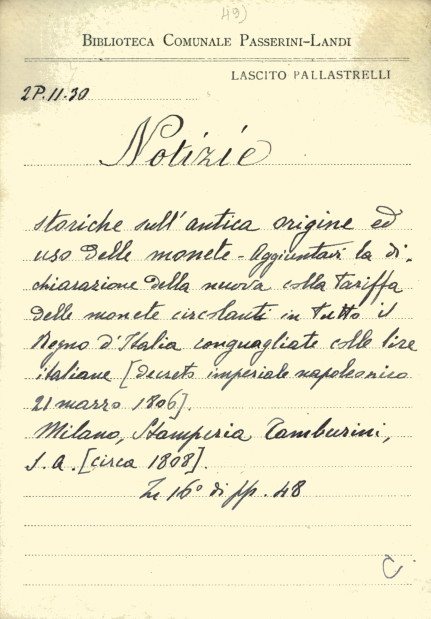 49)
BIBLIOTECA COMUNALE PASSERINI-LANDI
LASCITO PALLASTRELLI
2P.11.30
Notizie
storiche sull'antica origine ed
uso delle monete - Aggiuntavi la di-
chiarazione della nuova colla tariffa
delle monete circolanti in tutto il
Regno d'Italia conguagliate colle lire
italiane [decreto imperiale napoleonico
21 marzo 1806].
Milano, Stamperia Tamburini,
s.a. [circa 1808].
In 16° di pp. 48
C